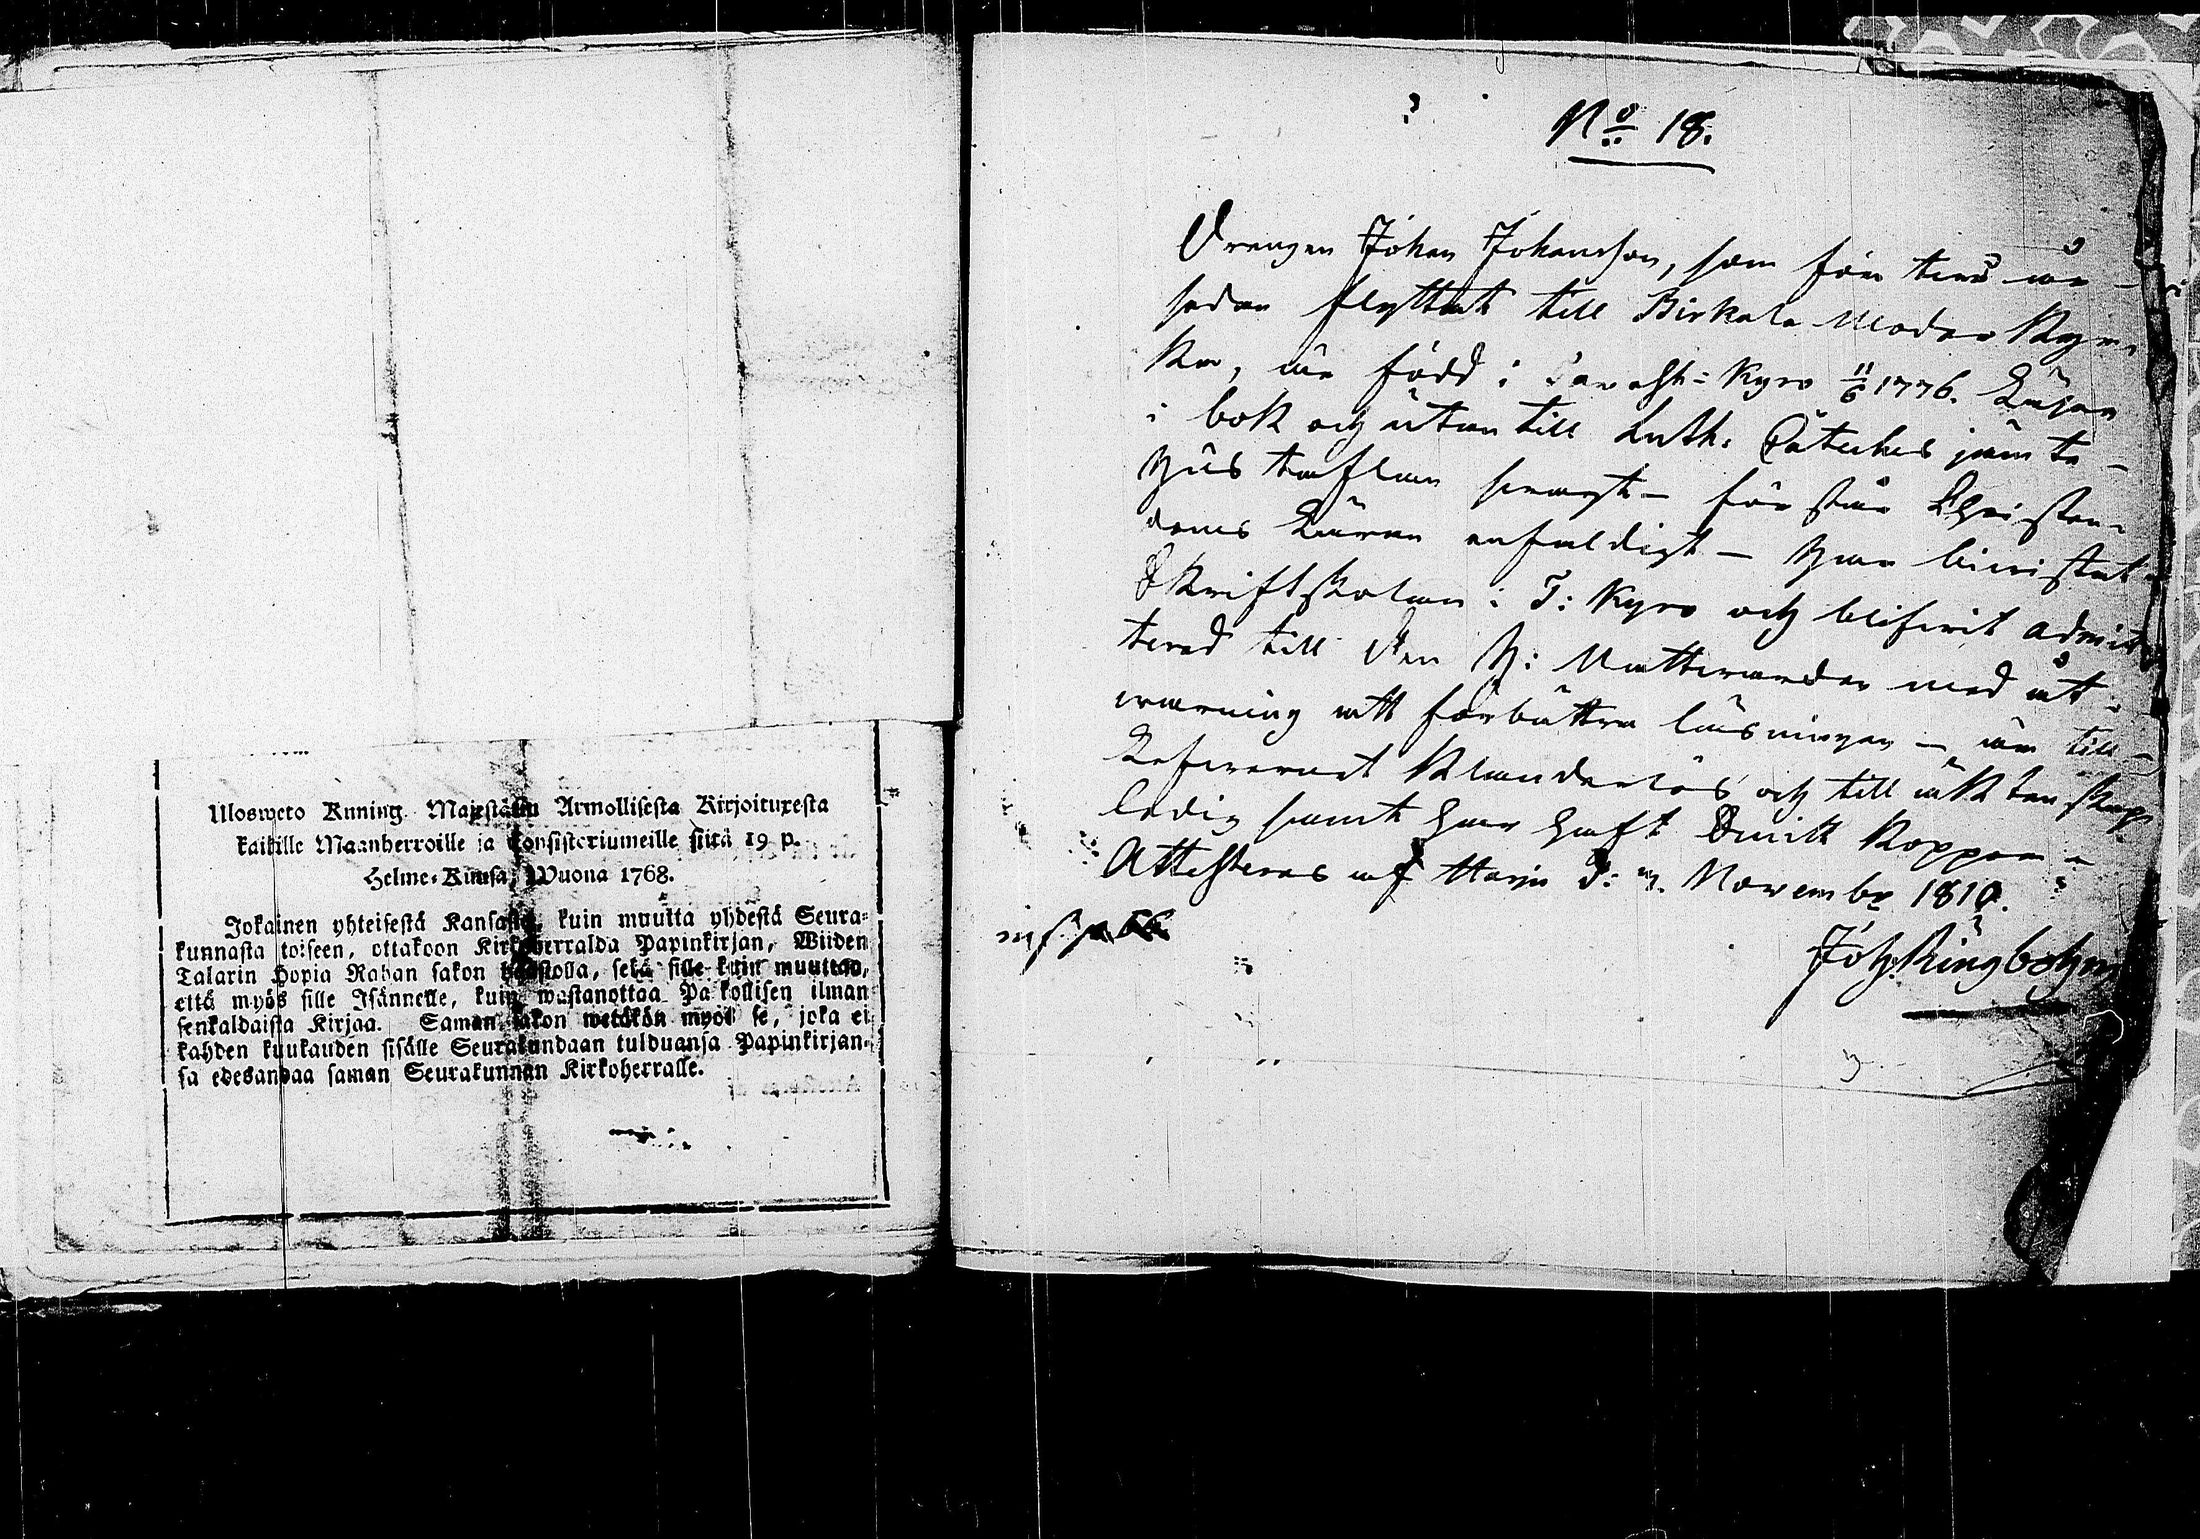 Ulosweto Kuning. Majestätin Armollisesta Kirjoituxesta
kaikille Maanherroille ja Consistoriumeille siitä 19 p.
Helme-Kuusa, Wuona 1768.
Jokainen yhteisestä Kansasta, kuin muutta yhdestä Seura-
kunnasta toiseen, ottakoon Kirkoherralda Papinkirjan, Wiiden
Talarin Hopia Rahan sakon haastolla, sekä sille kuin muuttaa,
että myös sille Isännelle, kuin wastanottaa Palkollisen ilman
senkaldaista Kirjaa. Saman sakon wetäkön myös se, joka ei
kahden kuukauden sisälle Seurakundaan tulduansa Papinkirjan-
sa edesandaa saman Seurakunnan Kirkoherralle.
No 18.
Drengen Johan Johansson, som för tree år
sedan flyttat till Birkala Moder Kyr-
ka, är född i Tavasth: Kyro 11/6 1776. Läser
i bok och utan till Luth: Cateches jämte
Hustaflan svagt – förstår Christen-
doms Läran enfaldigt – har bevistat
Skriftskolan i T: Kyro och blifvit admit-
terad till den H: Nattwarden med åt-
warning att förbättra läsningen – är till
Lefvernet klanderlös och till äktenskap
ledig samt har haft Skutt Koppor
Attesteras af Harju d: 7. Novembr 1810.
Joh Ringbohm